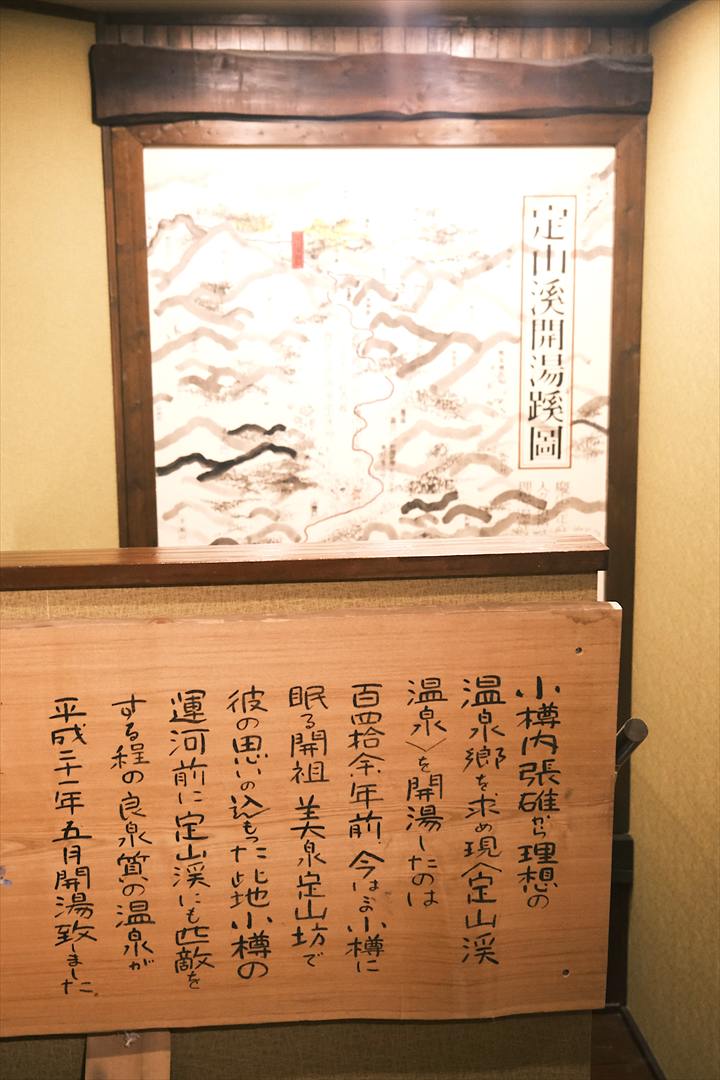 定山溪開湯蹊圖
小樽内張碓から理想の
温泉郷を求め現〈定山渓
温泉〉を開湯したのは
百四拾余年前、今はお小樽に
眠る開祖 美泉定山坊で
彼の思いの込もった此地小樽の
運河前に定山渓にも匹敵を
する程の良泉質の温泉が
平成二十一年五月開湯致しました。